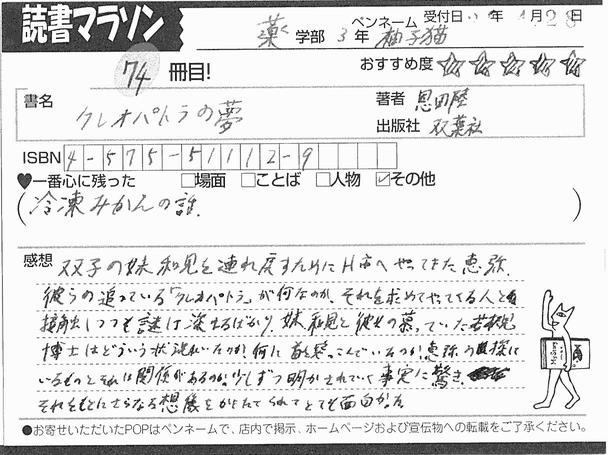 読書マラソン
受付日 年 4月28日
薬学部 3年 ペンネーム 柚子猫
74冊目!
おすすめ度 ☆☆☆☆☆
書名 クレオパトラの夢
著者 恩田陸
出版社 双葉社
ISBN 4-575-51112-9
♥一番心に残った □場面 □ことば □人物 ☑その他
(冷凍みかんの話.)
感想 双子の妹 和見を連れ戻すためにH市へやってきた恵弥.
彼らの追っている「クレオパトラ」が何なのか、それを求めてやってくる人と
接触しつつも謎は深まるばかり。妹 和見と彼女の慕っていた若槻
博士はどういう状況にいたのか、何に首を突っこんでいるのか、恵弥の探して
いるものとそれは関係があるのか、少しずつ明かされていく事実に驚き、
それをもとにさらなる想像をかきたてられてとても面白かった
●お寄せいただいたPOPはペンネームで、店内で掲示、ホームページおよび宣伝物への転載をご了承ください。